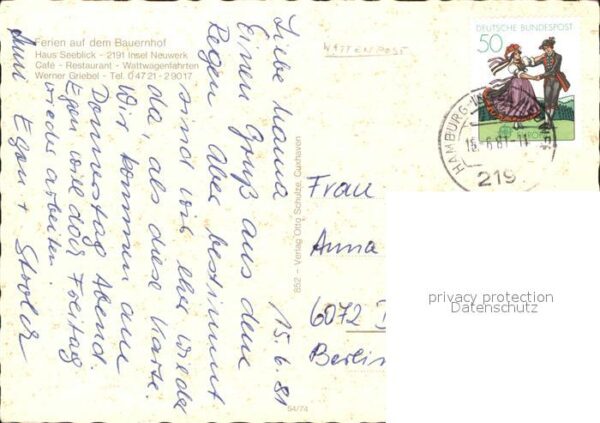 Ferien auf dem Bauernhof
Haus Seeblick - 2191 Insel Neuwerk
Café - Restaurant - Wattwagenfahrten
Werner Griebel - Tel. 0 47 21 - 2 90 17
WATTENPOST
DEUTSCHE BUNDESPOST
50
HAMBURG
15.6.81-11
219
15.6.81
Liebe Mama
Einen Gruß aus dem
Regen. Aber bestimmt
sind wir eher wieder
da, als diese Karte.
Wir kommen am
Donnerstag Abend.
Egon will doch Freitag
wieder arbeiten.
Egon +
852 - Verlag Otto Schulze, Cuxhaven
54/74
Frau
Anna
6072
Berlin
privacy protection
Datenschutz